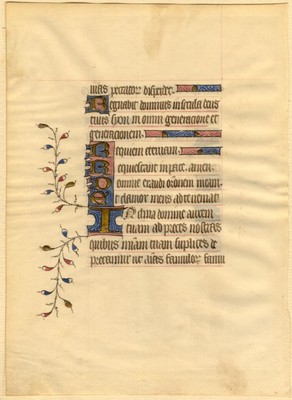 uias peccator disperdet.
Regnabit dominus in secula deus
tuus syon in omni generacione et
generacionem.
Requiem eternam.
Requiescant in pace. amen.
Domine exaudi orōnem meam.
Et clamor meus ad te ueniat.
Inclina domine aurem
tuam ad preces nostras
quibus miām tuam suplices de
precamur ut aīas famulor famu